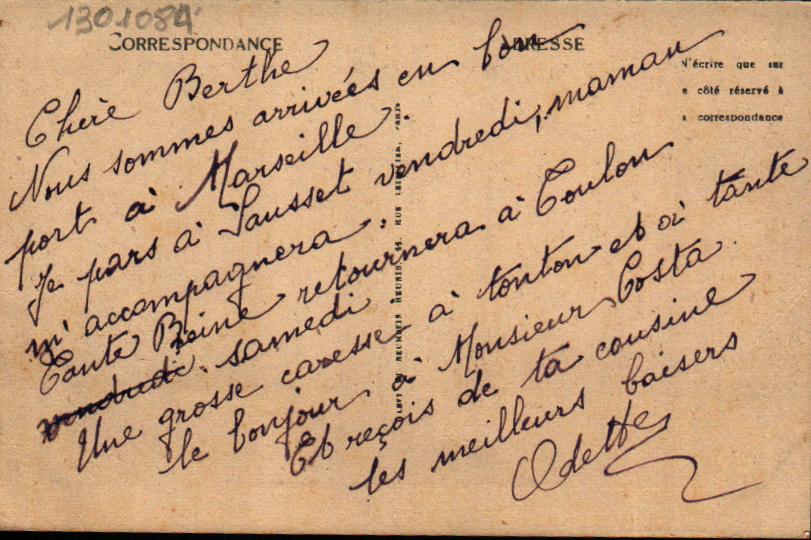 1301084
CORRESPONDANCE
ADRESSE
N'écrire que sur
e côté réservé à
a correspondance
Chère Berthe
Nous sommes arrivées en bon
port à Marseille.
Je pars à Sausset vendredi, maman
m'accompagnera.
Tante Reine retournera à Toulon
vendredi samedi.
Une grosse caresse à tonton et à tante
le bonjour à Monsieur Costa.
Et reçois de ta cousine
les meilleurs baisers
Odette
LEVY NEURDEIN REUNIS, 44, RUE LETELLIER, PARIS